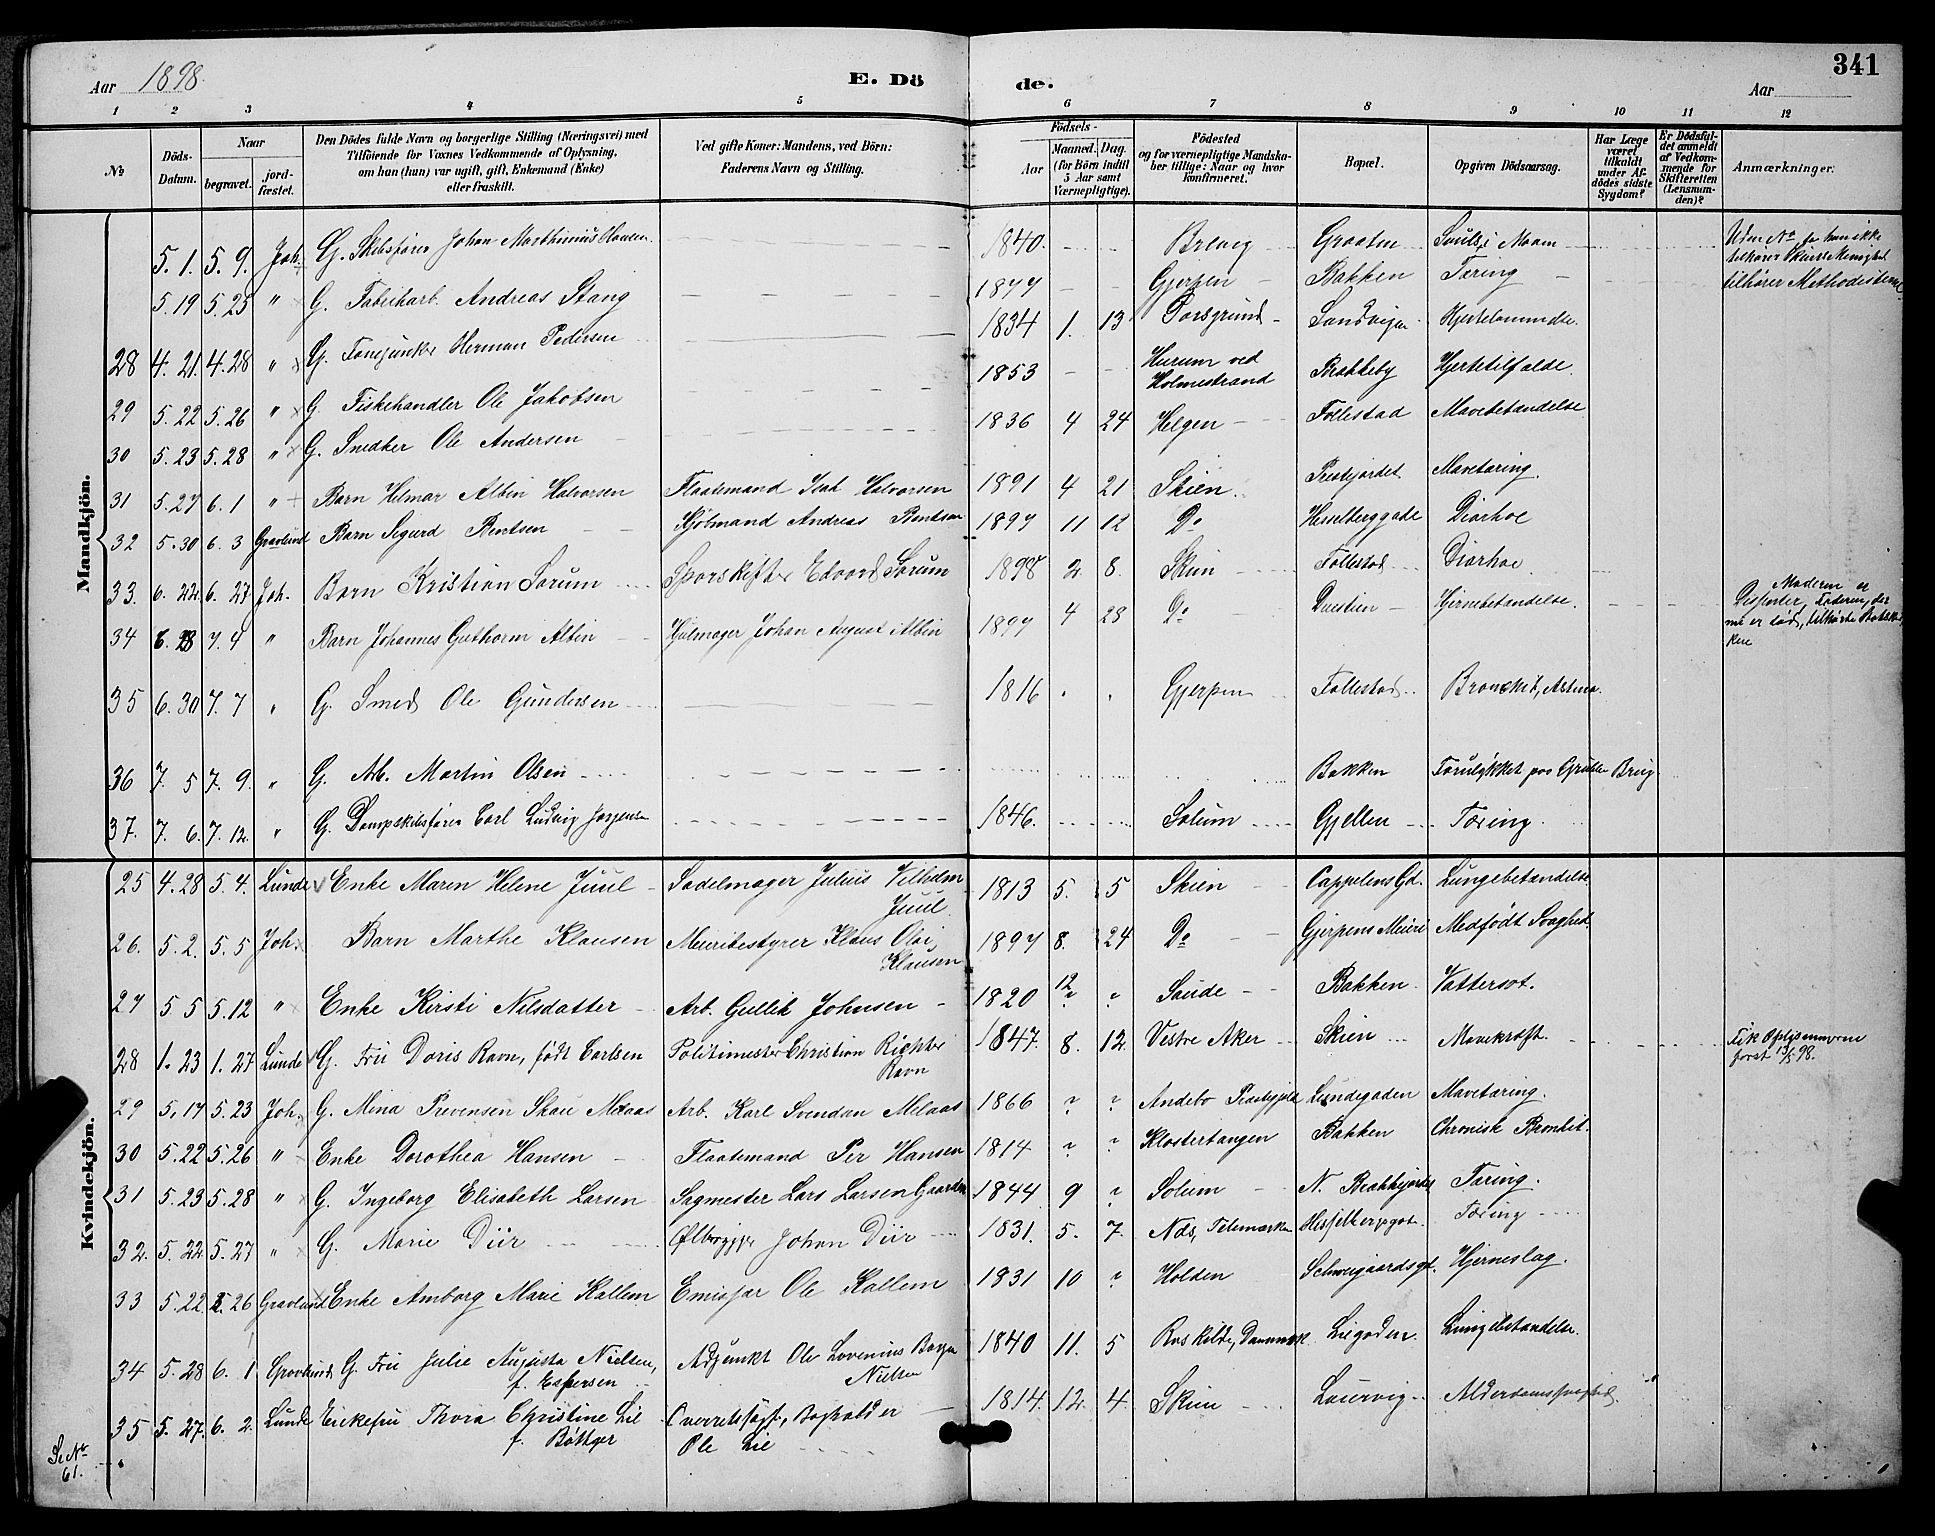 341
Aar 1898. E. Dö de. Aar
1 2 3 4 5 6 7 8 9 10 11 12
No Döds-Datum. Naar begravet. jord-fæstet. Den Dödes fulde Navn og borgerlige Stilling (Næringsvei) med Tilföiende for Voxnes Vedkommende af Oplysning, om han (hun) var ugift, gift, Enkemand (Enke) eller fraskilt. Ved gifte Koner: Mandens, ved Börn: Faderens Navn og Stilling. Födsels- Aar Maaned. Dag. (for Börn indtil 5 Aar samt Værnepligtige). Födested og for værnepligtige Mandska-ber tillige: Naar og hvor konfirmeret. Bopæl. Opgiven Dödsaarsag. Har Læge været tilkaldt under Af-dödes sidste Sygdom? Er Dödsfal-det anmeldt af Vedkom-mende for Skifteretten (Lensman-den)? Anmærkninger.
Mandkjön.
5. 1. 5. 9. Joh. G. Skibsfører Johan Marthinius 1840. Brevig Graaten Uden No da han ikke tilhører Skiens Menighed
5. 19 5. 25 " G. Fabrikarb. Andreas Stang 1877 Gjerpen Bakken Tæring tilhører Methodisterne
28 4. 21. 4. 28 " G. Herman Pedersen 1834 1. 13 Porsgrund Sandvigen
29 5. 22 5. 26 " G. Fiskehandler Ole Jakobsen 1853 Hurum ved Holmestrand Brekkeby Hjertetilfælde.
30 5. 23 5. 28 " G. Snedker Ole Andersen 1836 4 24 Helgen Follestad Mavebetændelse
31 5. 27 6. 1 " Barn Hilmar Albin Halvorsen Flaatemand Isak Halvorsen 1891 4 21 Skien Mavetæring.
32 5. 30 6. 3 Gravlund Barn Sigurd Bentsen Andreas Bentsen 1897 11 12 Do Hesselberggade Diarhoe
33. 6. 22. 6. 27 Joh. Barn Kristian Sørum Sporskifter Edvard Sørum 1898 2. 8. Skien Follestad Diarhoe
34 6. 28 7. 4 " Barn Johannes Guthorm Albin Hjulmager Johan August Albin 1897 4 28 Do Duestien Hjernebetændelse. Moderen er Dissenter, Faderen, der nu er død, tilhørte Statskirken
35 6. 30 7. 7 " G. Smed Ole Gundersen 1816 Gjerpen Follestad Bronchit, Astma.
36 7. 5 7. 9. " G. Arb. Martin Olsen Bakken Forulykket paa Brug
37. 7. 6. 7. 12. " G. Dampskibsfører Carl Ludvig Jørgensen 1846. Solum Gjellen Tæring.
Kvindekjön.
25 4. 28 5. 4. Lunde Enke Maren Helene Juul Sadelmager Julius Vilhelm Juul 1813 5. 5 Skien Cappelens Gd. Lungebetændelse
26. 5. 2. 5. 5 Joh. Barn Marthe Klausen Meieribestyrer Klaus Olai Klausen 1897 8. 24 Do Gjerpens Meieri Medfødt Svaghed
27 5 5 5. 12 " Enke Kirsti Nilsdatter Arb. Gullik Johnsen 1820 12 ? ? Saude Bakken Vattersot.
28 1. 23 1. 27 Lunde G. Fru Doris Ravn, født Carlsen Politimester Christian Richter Ravn 1847. 8. 12. Vestre Aker Skien Mavekræft. Fik Oplysningerne først 13/5 98.
29 5. 17 5. 23 Joh. G. Mina Prevensen Skau Melaas Arb. Karl Svendsen Melaas 1866 ? ? Andebo Præstegjeld Lundegaden Mavetæring.
30 5. 22 5. 26 " Enke Dorothea Hansen Flaatemand Per Hansen 1814 ? ? Klostertangen Bakken Chronisk Bronkit.
31 5. 23 5. 28 " G. Ingeborg Elisabeth Larsen Sagmester Lars Larsen 1844 9 ? Solum N. Brekkejordet Tæring.
32. 5. 22 5. 27 " G. Marie Diir Ølbrygger Johan Diir 1831. 5. 7. Nds, Telemarken Hesselbergsgd. Tæring
33 5. 22 5. 26 Gravlund Enke Amborg Marie Kallem Emissær Ole Kallem 1831 10 ? Holden Schweigaardsgd. Hjerneslag.
34 5. 28 6. 1 Gravlund G. Fru Julie Augusta Nielsen, f. Espersen Adjunkt Ole Lovenius Nielsen 1840 11. 5 Roskilde, Danmark Liegaden Lungebetændelse.
35 5. 27. 6. 2. Lunde Enkefru Thora Christine Lie f. Bøttger Overretssagf., Bogholder Ole Lie 1814. 12. 4 Skien Laurvig Alderdomssvaghed
Se No 61.